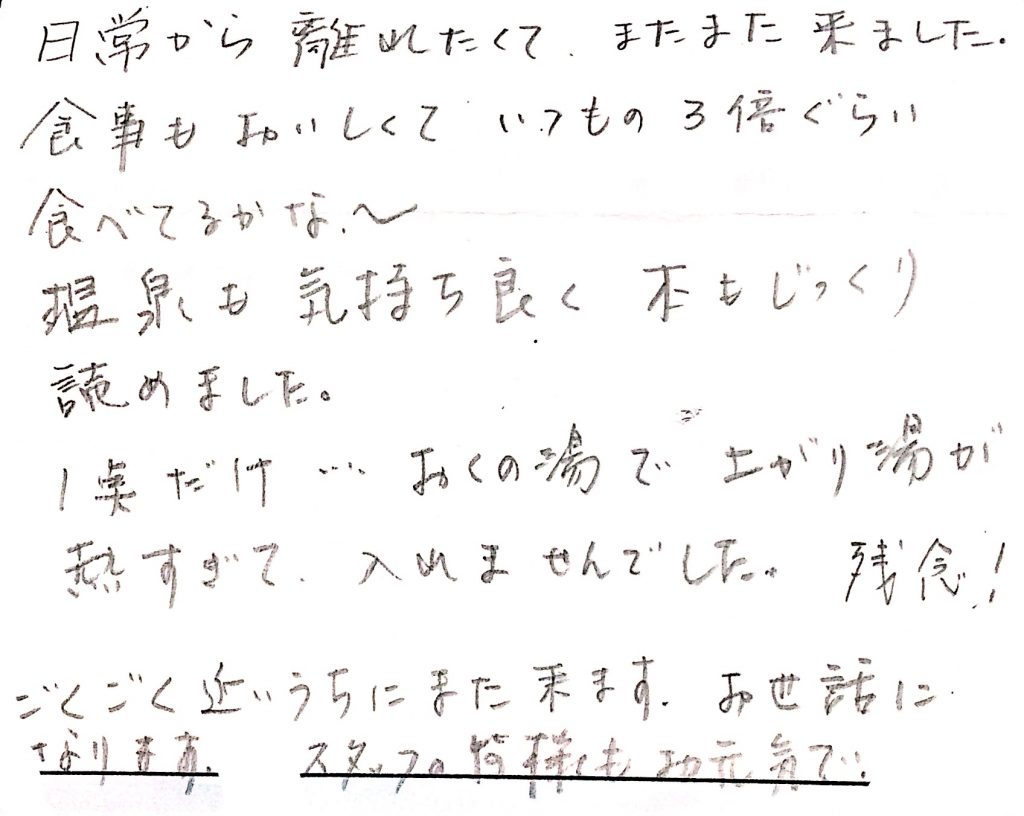 日常から離れたくて、またまた来ました。
食事もおいしくて いつもの3倍ぐらい
食べてるかな、〜
温泉も気持ち良く 本もじっくり
読めました。
1点だけ … おくの湯で 上がり湯が
熱すぎて、入れませんでした。残念!
ごくごく近いうちにまた来ます。お世話に
なります。 スタッフの皆様もお元気で。